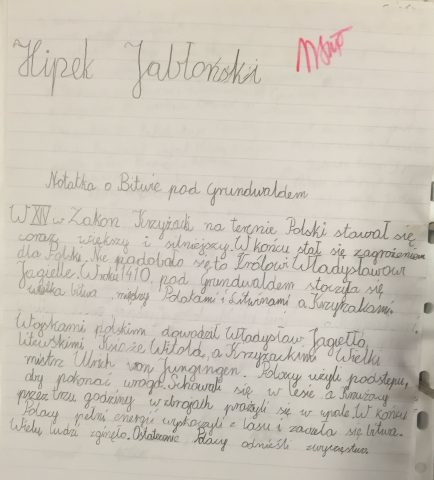 Hipek Jabłoński
Notatka o Bitwie pod Grunwaldem
W XIV w Zakon Krzyżaki na terenie Polski stawał się
coraz większy i silniejszy. W końcu stał się zagrożeniem
dla Polski. Nie podobało się to Królowi Władysławowi
Jagielle. W roku 1410 pod Grunwaldem stoczyła się
wielka bitwa między Polakami i Litwinami a Krzyżakami.
Wojskami polskim dowodził Władysław Jagiełło,
Litewskimi Książe Witold, a Krzyżackimi Wielki
mistrz Ulrich von Jungingen. Polacy użyli podstępu,
aby pokonać wroga. Schowali się w lesie a Krzyżacy
przez trzy godziny w zbrojach prażyli się w upale. W końcu
Polacy pełni energii wyskoczyli z lasu i zaczeła się bitwa.
Wielu ludzi zginęło. Ostatecznie Polacy odnieśli zwycięstwo.